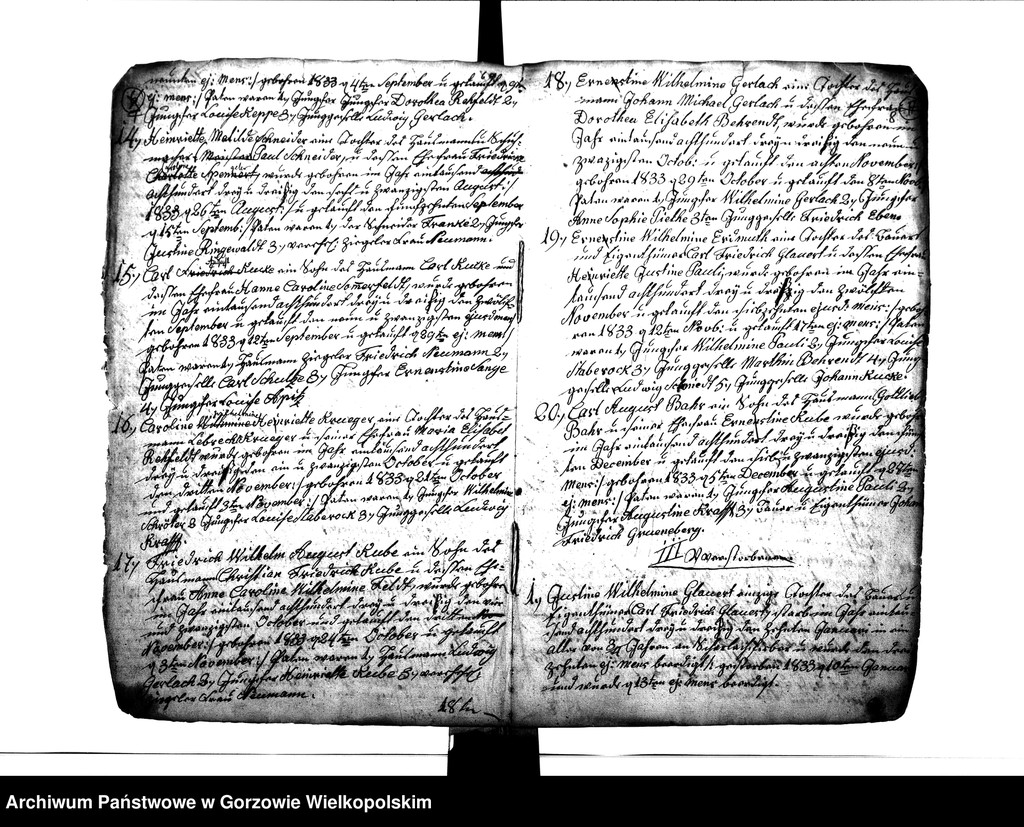 neunten ej: mens:/ gebohren 1833 d 4ten September u getauft d 9t
ej: mens:/ Paten waren 1, Jungfer Dorothea Rehfeldt 2,
Jungfer Louise Reppe 3, Junggeselle Ludwig Gerlach.
14, Henriette Matilde Schneider eine Tochter des Hausmann u Schuh-
macher Meister Paul Schneider, u dessen Ehefrau Friedricke
Charlotte wurde gebohren im Jahr eintausend
achthundert drey u dreißig den sechs u zwanzigsten August:/
1833 d 26ten August:/ u getauft den funfzehnten September
d 15ten Septemb:/ Paten waren 1, der Schneider Franke 2, Jungfer
Justine Ringewaldt 3, Ziegler Frau Neumann.
15, Carl Friedrich Kucke ein Sohn des Hausmann Carl Kucke und
dessen Ehefrau Hanne Caroline Somerfeldt, wurde gebohren
im Jahr eintausend achthundert drey u dreißig den zwölf-
ten September u getauft den neun u zwanzigsten ejusd mens
gebohren 1833 d 12ten September u getauft d 29ten ej: mens/
Paten waren 1, Hausmann Ziegler Friedrich Neumann 2,
Junggeselle Carl Schultze 3, Jungfer Ernestine Lange
4, Jungfer Louise Apitz
16, Caroline Wilhelmine Henriette Krueger, eine Tochter des Haus-
mann Lebrecht Krueger u seiner Ehefrau Maria Elisabet
Rehfeldt wurde gebohren im Jahr eintausend achthundert
drey u dreißig den ein u zwanzigsten October u getauft
den dritten November:/ gebohren 1833 d 21ten October
und getauft d 3ten November:/ Paten waren 1, Jungfer Wilhelmine
Schröter 2 Jungfer Louise Staberock 3, Junggeselle Ludwig
Krafft.
17, Friedrick Wilhelm August Kube ein Sohn des
Hausmann Christian Friedrich Kube u dessen Ehe-
frau Anne Caroline Wilhelmine Feldt, wurde gebohren
im Jahr eintausend achthundert drey u dreißig den vier
und zwanzigsten October und getauft den dritten
November:/ gebohren 1833 d 24ten October u getauft
d 3ten November:/ Paten waren 1, Hausmann Ludwig
Gerlach 2, Jungfer Henriette Kube 3,
Ziegler Frau Neumann.
18,
18, Ernestine Wilhelmine Gerlach eine Tochter des Haus-
mann Johann Michael Gerlach u dessen Ehefrau
8
Dorothea Elisabeth Behrendt, wurde gebohren im
Jahr eintausend achthundert drey u dreißig den neun u
zwazigsten Octob: u getauft den achten November/
gebohren 1833 d 29ten October u getauft den 8ten Nov
Paten waren 1, Jungfer Wilhelmine Gerlach 2, Jungfer
Anne Sophie Pielke 3ten Junggeselle Friedrich
19, Ernestine Wilhelmine Erdmuth eine Tochter des Bauer
und Eigenthümer Carl Friedrich Glauert u dessen Ehefrau
Henriette Justine Pauli, wurde gebohren im Jahr ein-
tausend achthundert drey u dreißig den zwölften
November u getauft den siebzehnten ejusd: mens:/ geboh-
ren 1833 d 12ten Novb: u getauft 17ten ej: mens:/ Paten
waren 1, Jungfer Wilhelmine Pauli 2, Jungfer Louise
Staberock 3, Junggeselle Marthin Behrendt 4, Jung-
geselle Ludwig 5, Junggeselle Johann Kucke
20, Carl August Bahr ein Sohn des Hausmann Gottlieb
Bahr u seiner Ehefrau Ernestine Kube wurde gebohren
im Jahr eintausend achthundert drey u dreißig den fünf-
ten December u getauft den u zwanzigsten ejusd:
mens:/ gebohren 1833 d 5ten December u getauft d
ej: mens:/ Paten waren 1, Jungfer Augustine Pauli 2,
Jungfer Augustine Krafft 3, Bauer u Eigenthümer Johan
Friedrich Grueneberg.
III Verstorbene
1, Justine Wilhelmine Glauert einzige Tochter des Bauer u
Eigenthümer Carl Friedrich Glauert, starb im Jahr eintau-
send achthundert drey u dreißig den zehnten Januari in ein
alter von Jahren an Scharlachfieber u wurde den drei
zehnten ej: mens beerdigt:/ gestorben 1833 d 10ten Januar
und wurde d 13ten ej: mens beerdigt.
Archiwum Państwowe w Gorzowie Wielkopolskim